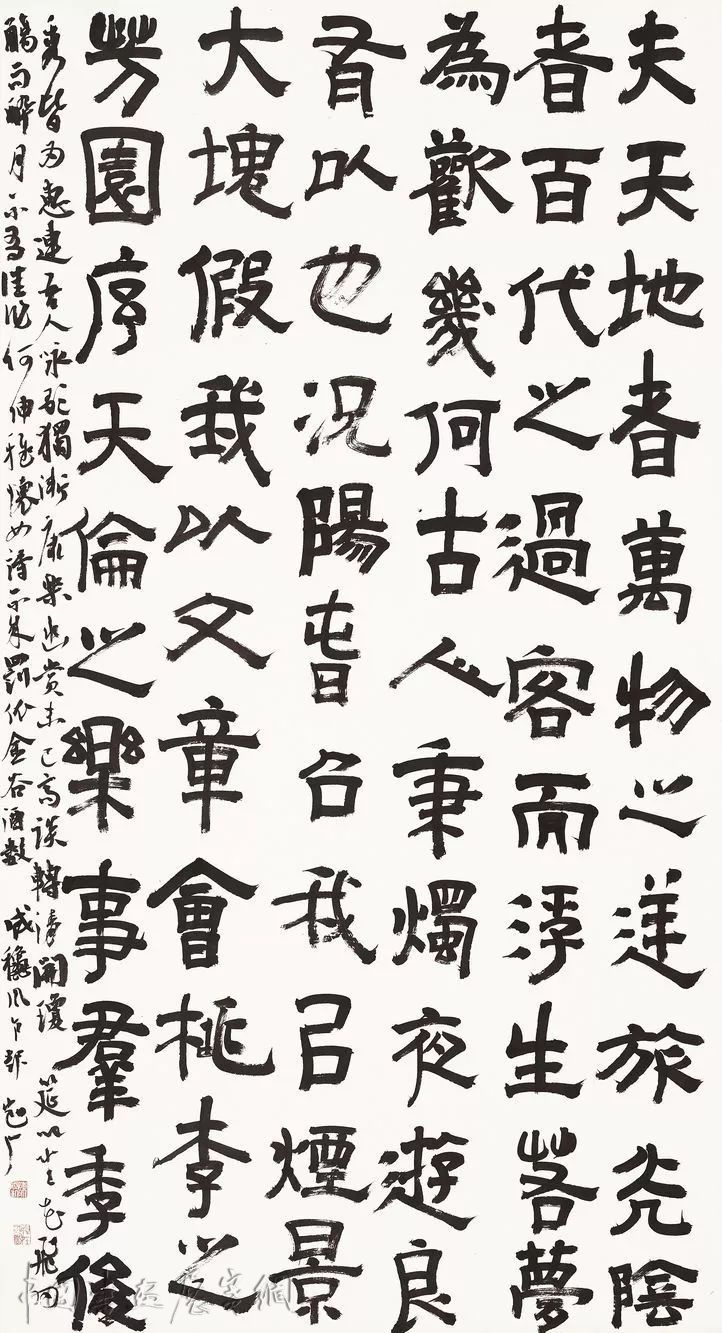 夫天地者萬物之逆旅光陰
者百代之過客而浮生若夢
為歡幾何古人秉燭夜遊良
有以也況陽春召我以煙景
大塊假我以文章會桃李之
芳園序天倫之樂事羣季俊
秀皆為惠連吾人詠歌獨慚康樂幽賞未已高談轉清開瓊筵以坐花飛羽
觴而醉月不有佳作何伸雅懷如詩不成罰依金谷酒數
中國書法展賽網